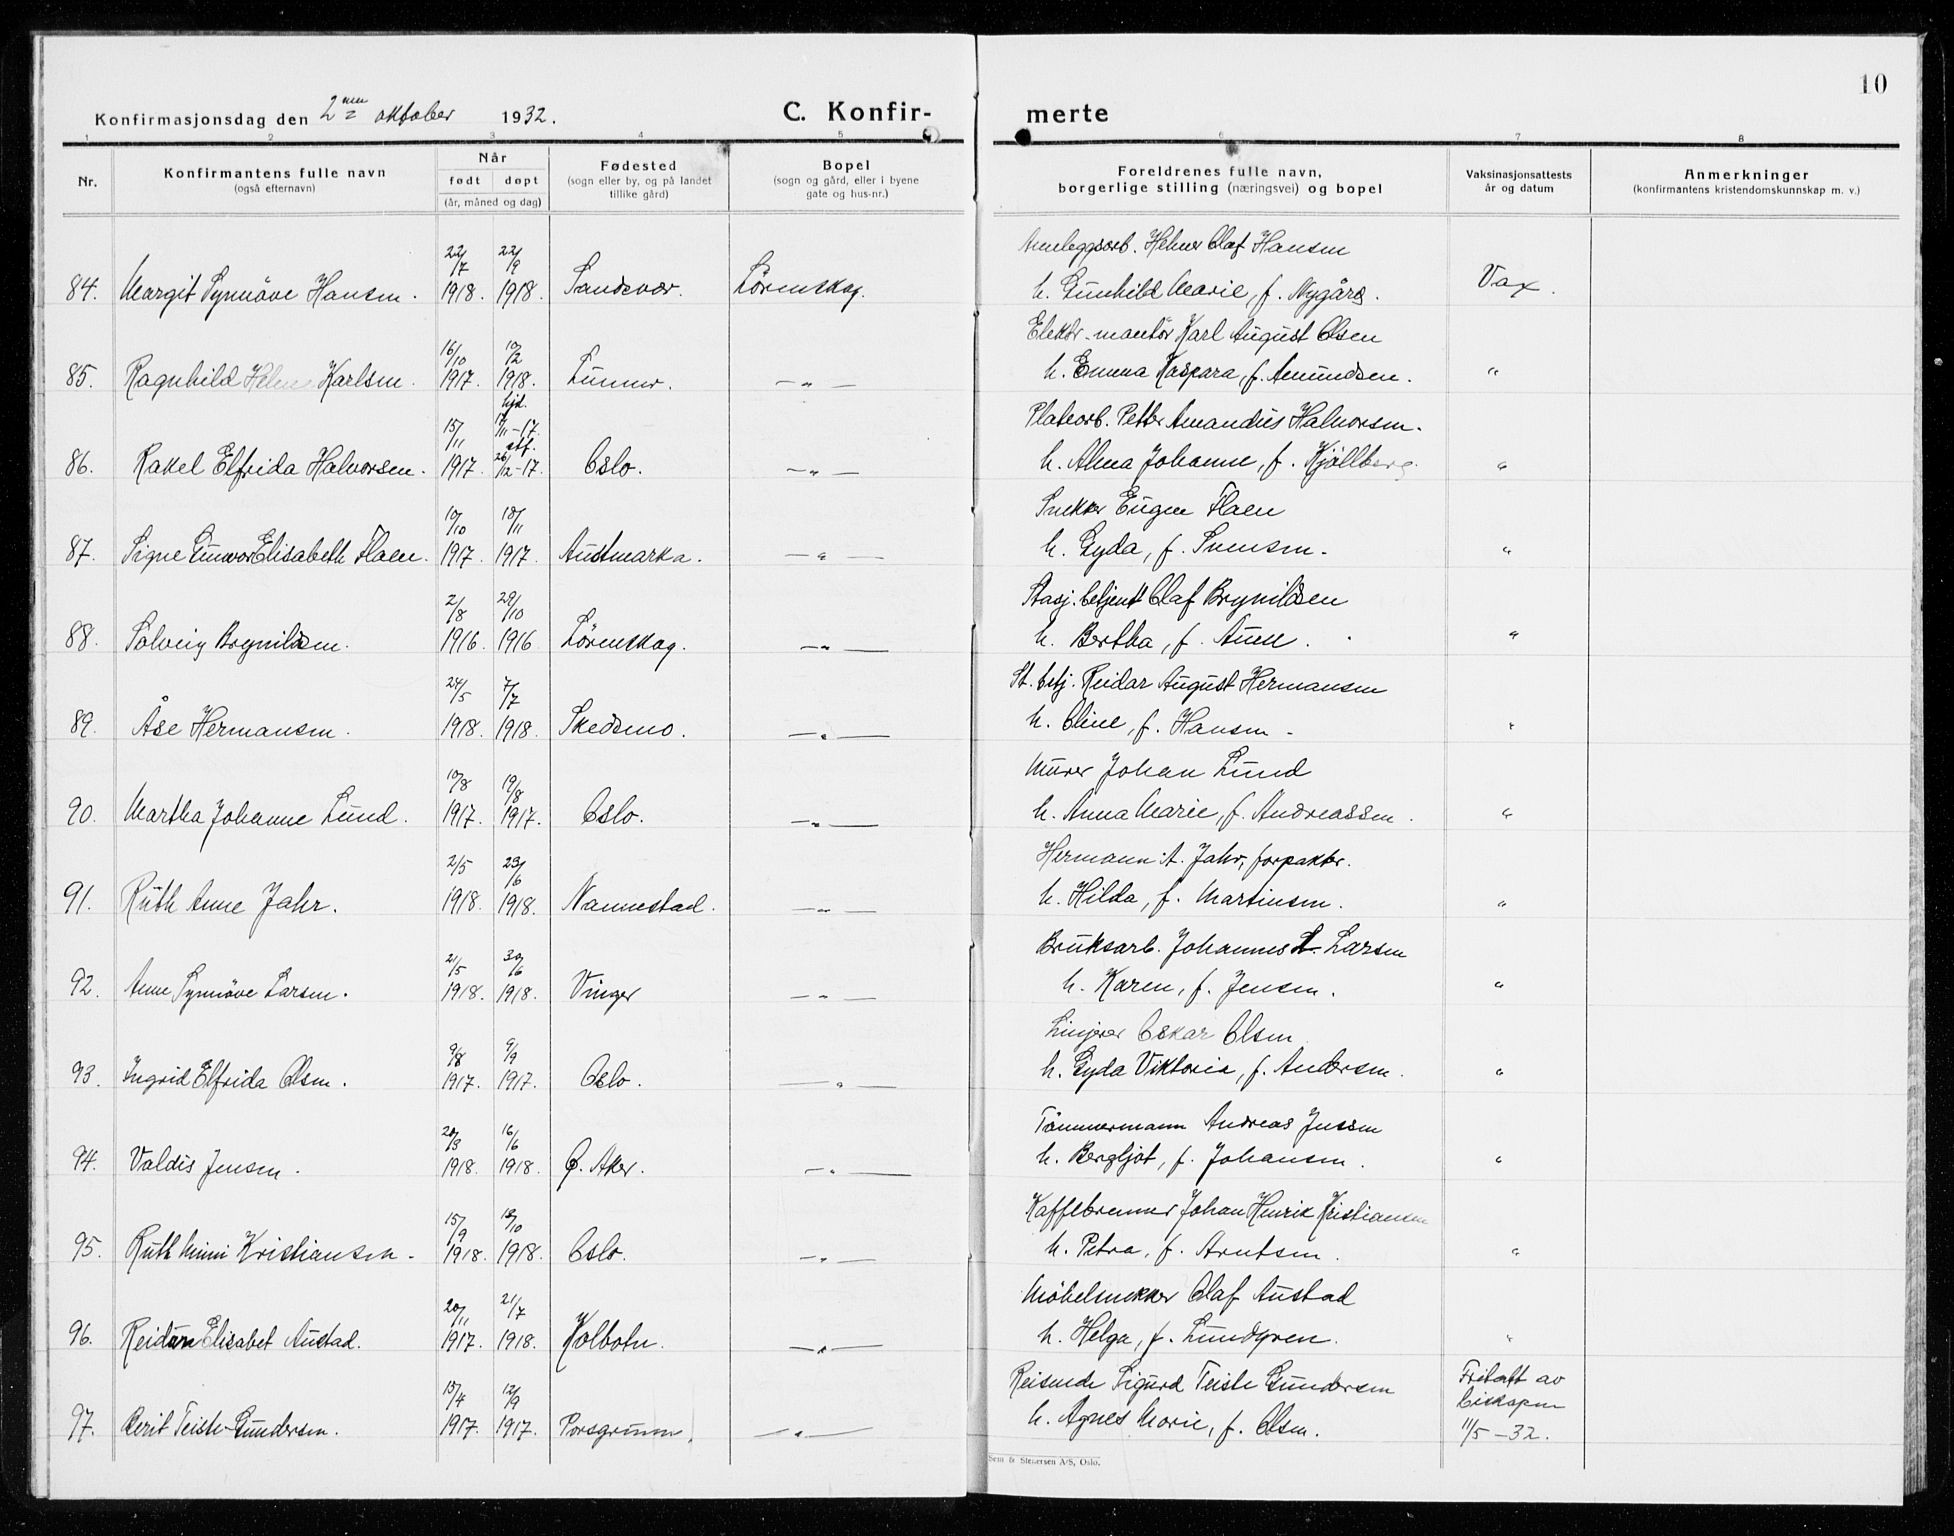 10
Konfirmasjonsdag den 2nen oktober 1932. C. Konfir- merte
1 2 3 4 5 6 7 8
Nr. Konfirmantens fulle navn (også efternavn) Når født døpt (år, måned og dag) Fødested (sogn eller by, og på landet tillike gård) Bopel (sogn og gård, eller i byene gate og hus-nr.) Foreldrenes fulle navn, borgerlige stilling (næringsvei) og bopel Vaksinasjonsattests år og datum Anmerkninger (konfirmantens kristendomskunnskap m. v.)
22/7 22/9 Anleggsarb. Helmer Olaf Hansen
84. Margit Synnöve Hansen. 1918. 1918. Sandsvær. Lörenskog. h. Gunhild Marie, f. Nygård. Vax.
16/10 10/2 Elektr.-mantör Karl August Olsen
85. Ragnhild Karlsen. 1917. 1918. Lunner. — " — h. Emma Kaspara, f. Amundsen. "
15/11 hjd. 17/11-17. Platearb. Petter Amandus Halvorsen.
86. Rakel Elfrida Halvorsen. 1917. stf. 26/12-17. Oslo. — " — h. Alma Johanne, f. Kjöllberg. "
10/10 18/11 Snekker Eugen Flaen
87. Signe Gunvor Elisabeth Flaen. 1917. 1917. Austmarka. — " — h. Gyda, f. Svensen. "
2/8 29/10 Stasj. betjent Olaf Brynildsen
88. Solveig Brynildsen. 1916. 1916. Lörenskog. — " — h. Bertha, f. Aune. "
24/5 7/7 St. betj. Reidar August Hermansen
89. Åse Hermansen. 1918. 1918. Skedsmo. — " — h. Oline, f. Hansen. "
10/8 19/8 Murer Johan Lund
90. Martha Johanne Lund. 1917. 1917. Oslo. — " — h. Anna Marie, f. Andreassen. "
2/5 23/6 Hermann A. Jahr, forpakter.
91. Ruth Anne Jahr. 1918. 1918. Nannestad. — " — h. Hilda, f. Martinsen. "
21/5 30/6 Bruksarb. Johannes L. Larsen
92. Anne Synnöve Larsen. 1918. 1918. Vinger — " — h. Karen, f. Jensen. "
9/8 9/9 Linjerer Oskar Olsen
93. Ingrid Elfrida Olsen. 1917. 1917. Oslo. — " — h. Gyda Viktoria, f. Andersen. "
20/3 16/6 Tömmermann Andreas Jensen
94. Valdis Jensen. 1918. 1918. Ö. Aker. — " — h. Bergljot, f. Johansen. "
15/9 13/10 Kaffebrenner Johan Henrik Kristiansen
95. Ruth Mimi Kristiansen. 1918. 1918. Oslo. — " — h. Petra, f. Arntsen. "
20/11 21/7 Möbelsnekker Olaf Austad
96. Reidun Elisabet Austad. 1917. 1918. Kolbotn. — " — h. Helga, f. Lundgren. "
15/4 12/9 Reisende Sigurd Teiste Gundersen Fritatt av biskopen
97. Berit Teiste-Gundersen. 1917. 1917. Porsgrunn. — " — h. Agnes Marie, f. Olsen. 11/5-32.
Sem & Stenersen A/S, Oslo.